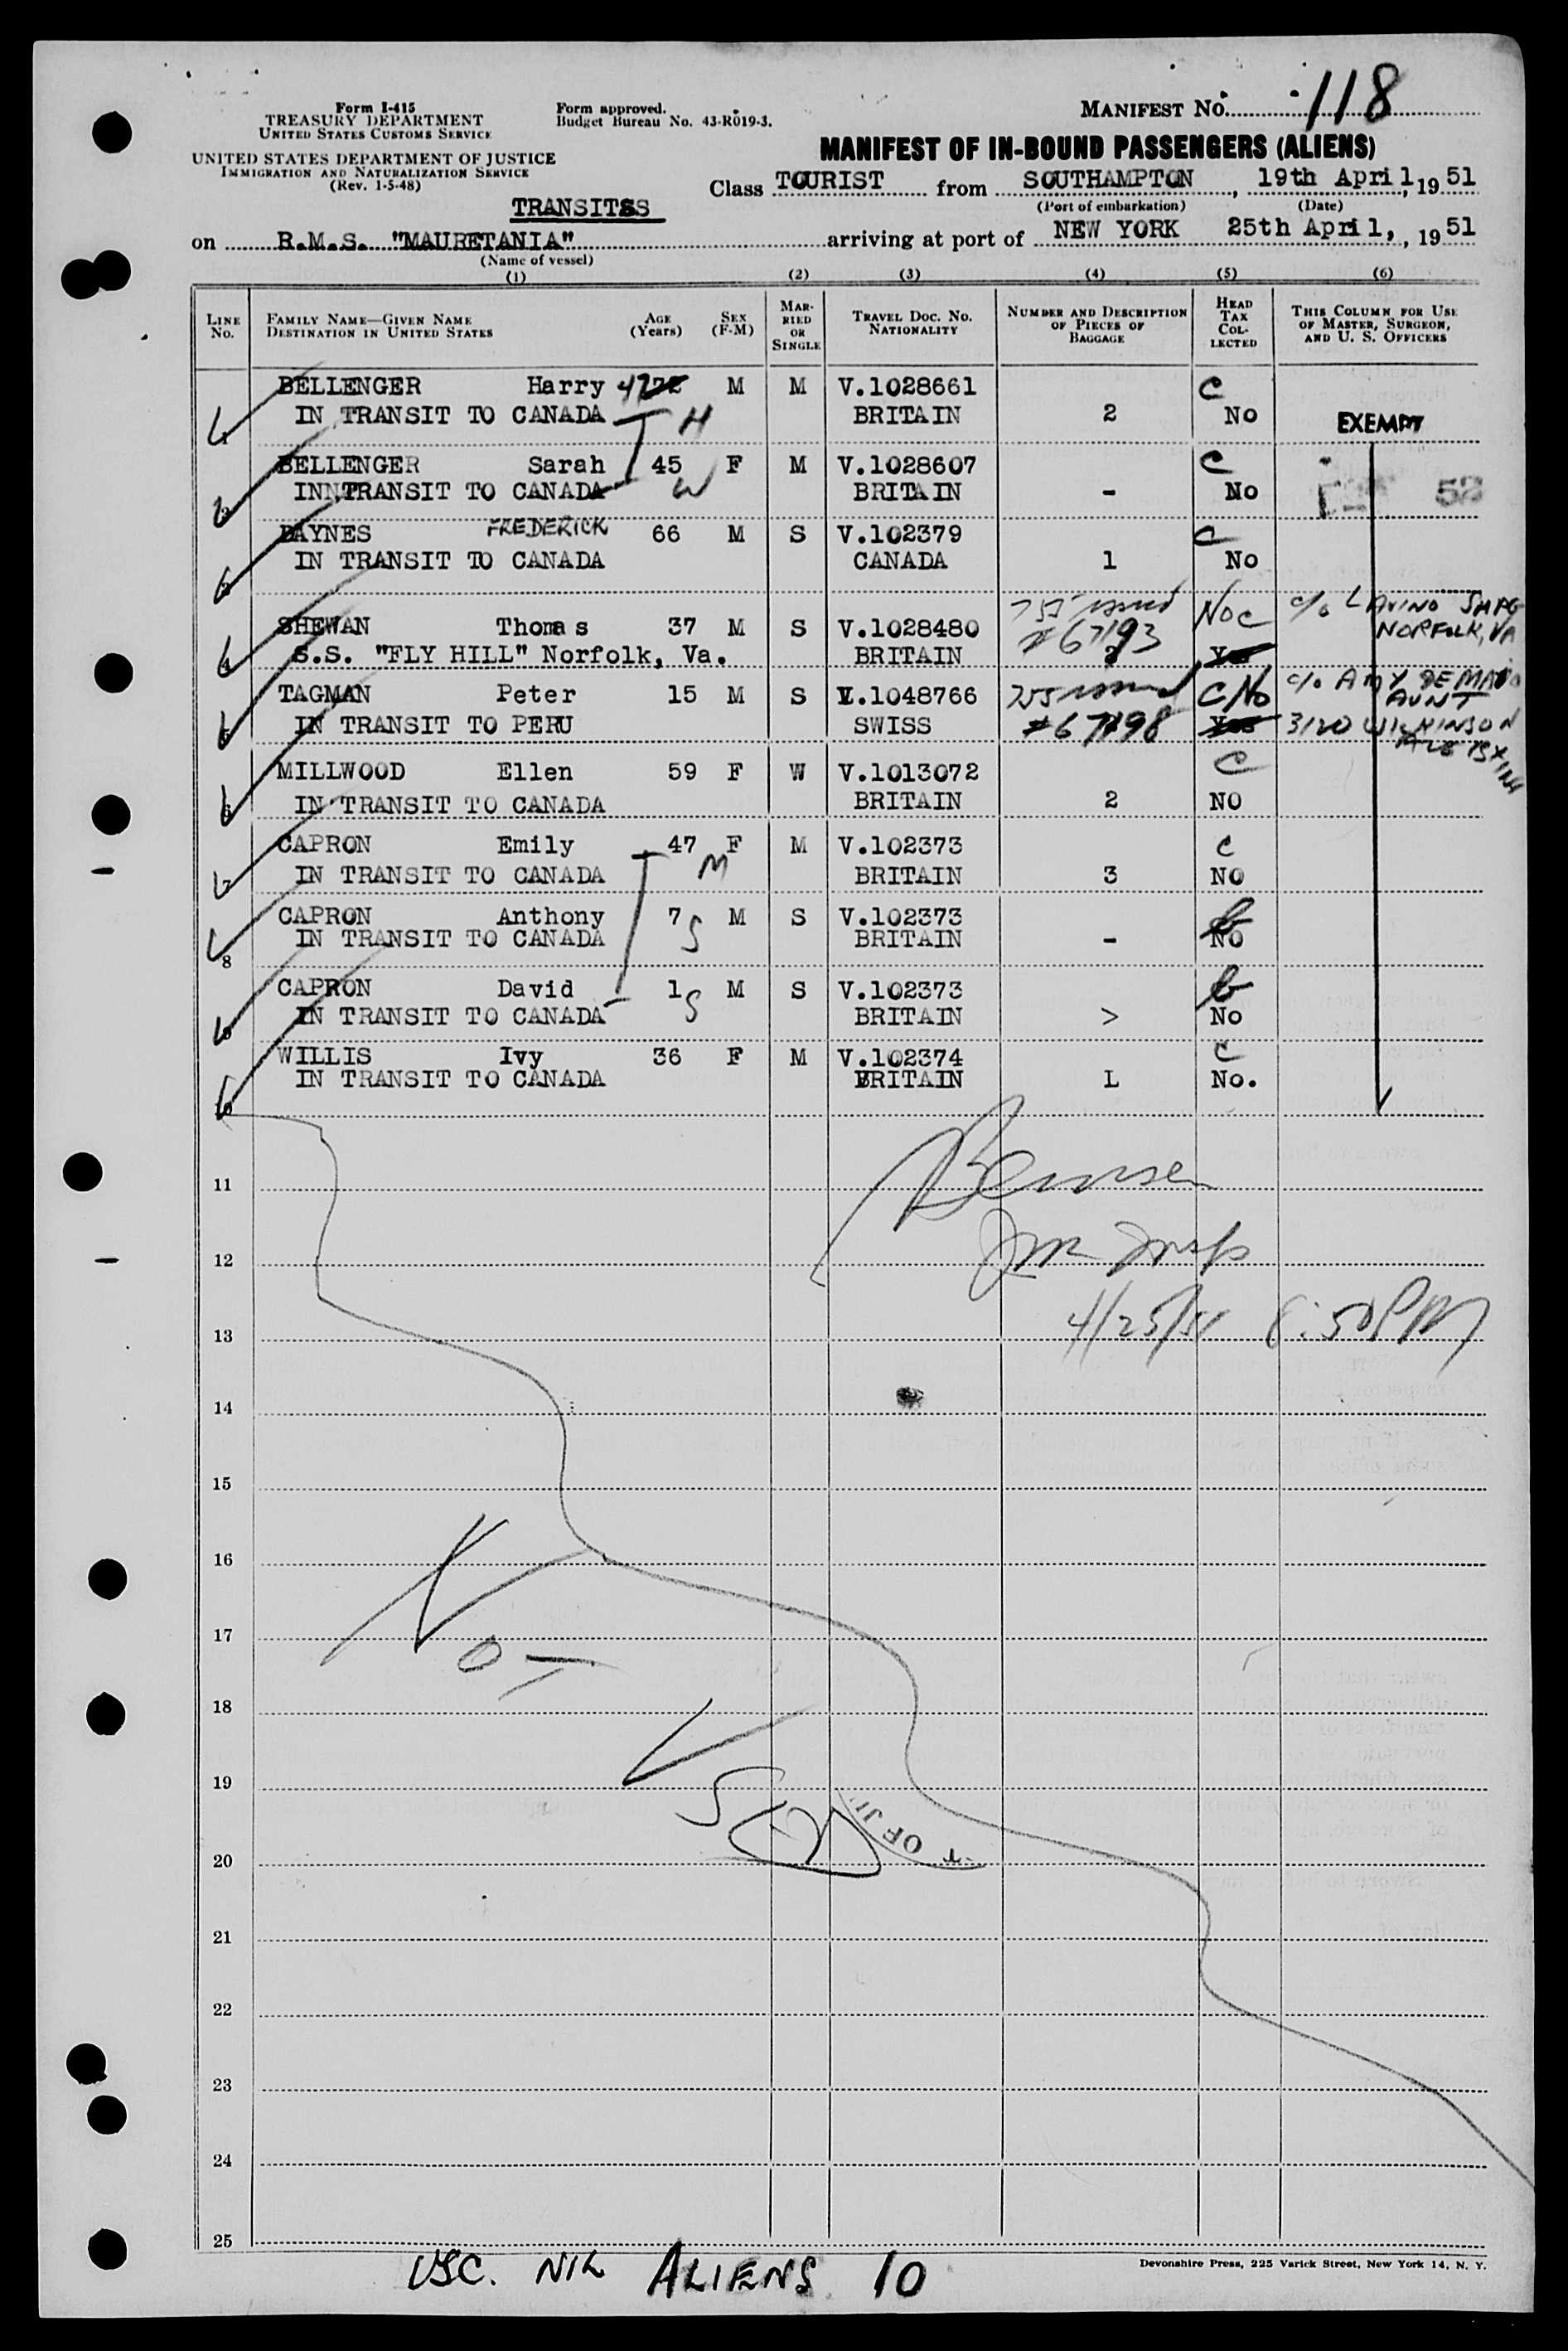 Form I-415
TREASURY DEPARTMENT
UNITED STATES CUSTOMS SERVICE
UNITED STATES DEPARTMENT OF JUSTICE
IMMIGRATION AND NATURALIZATION SERVICE
(Rev. 1-5-48)
Form approved.
Budget Bureau No. 43-R019-3.
MANIFEST NO. 118
MANIFEST OF IN-BOUND PASSENGERS (ALIENS)
Class TOURIST from SOUTHAMPTON, 19th April, 1951
(Port of embarkation) (Date)
TRANSITSS
on R.M.S. "MAURETANIA" arriving at port of NEW YORK 25th April, , 1951
(Name of vessel)
(1) (2) (3) (4) (5) (6)
LINE No.
FAMILY NAME—GIVEN NAME
DESTINATION IN UNITED STATES
AGE (Years)
SEX (F-M)
MARRIED OR SINGLE
TRAVEL DOC. NO.
NATIONALITY
NUMBER AND DESCRIPTION OF PIECES OF BAGGAGE
HEAD TAX COLLECTED
THIS COLUMN FOR USE OF MASTER, SURGEON, AND U. S. OFFICERS
BELLENGER Harry 47 M M V.1028661 C
IN TRANSIT TO CANADA H BRITAIN 2 No EXEMPT
BELLENGER Sarah 45 F M V.1028607 C
INNTRANSIT TO CANADA W BRITAIN - No 52
BAYNES FREDERICK 66 M S V.102379 C
IN TRANSIT TO CANADA CANADA 1 No
SHEWAN Thomas 37 M S V.1028480 #67193 No C c/o LAVINO SHPG
S.S. "FLY HILL" Norfolk, Va. BRITAIN 2 Yes NORFOLK, VA
TAGMAN Peter 15 M S V.1048766 C No c/o AMY
AUNT
IN TRANSIT TO PERU SWISS #67198 Yes 3120 WILKINSON
MILLWOOD Ellen 59 F W V.1013072 C
6 IN TRANSIT TO CANADA BRITAIN 2 NO
CAPRON Emily 47 F M V.102373 C
7 IN TRANSIT TO CANADA M BRITAIN 3 NO
CAPRON Anthony 7 M S V.102373
8 IN TRANSIT TO CANADA S BRITAIN - NO
CAPRON David 1 M S V.102373
IN TRANSIT TO CANADA S BRITAIN > No
WILLIS Ivy 36 F M V.102374 C
10 IN TRANSIT TO CANADA BRITAIN L No.
11
12
4/25/51 8:50 PM
13
14
15
16
17
18
19
OF JU
20
21
22
23
24
25
USC. NIL ALIENS 10
Devonshire Press, 225 Varick Street, New York 14, N. Y.